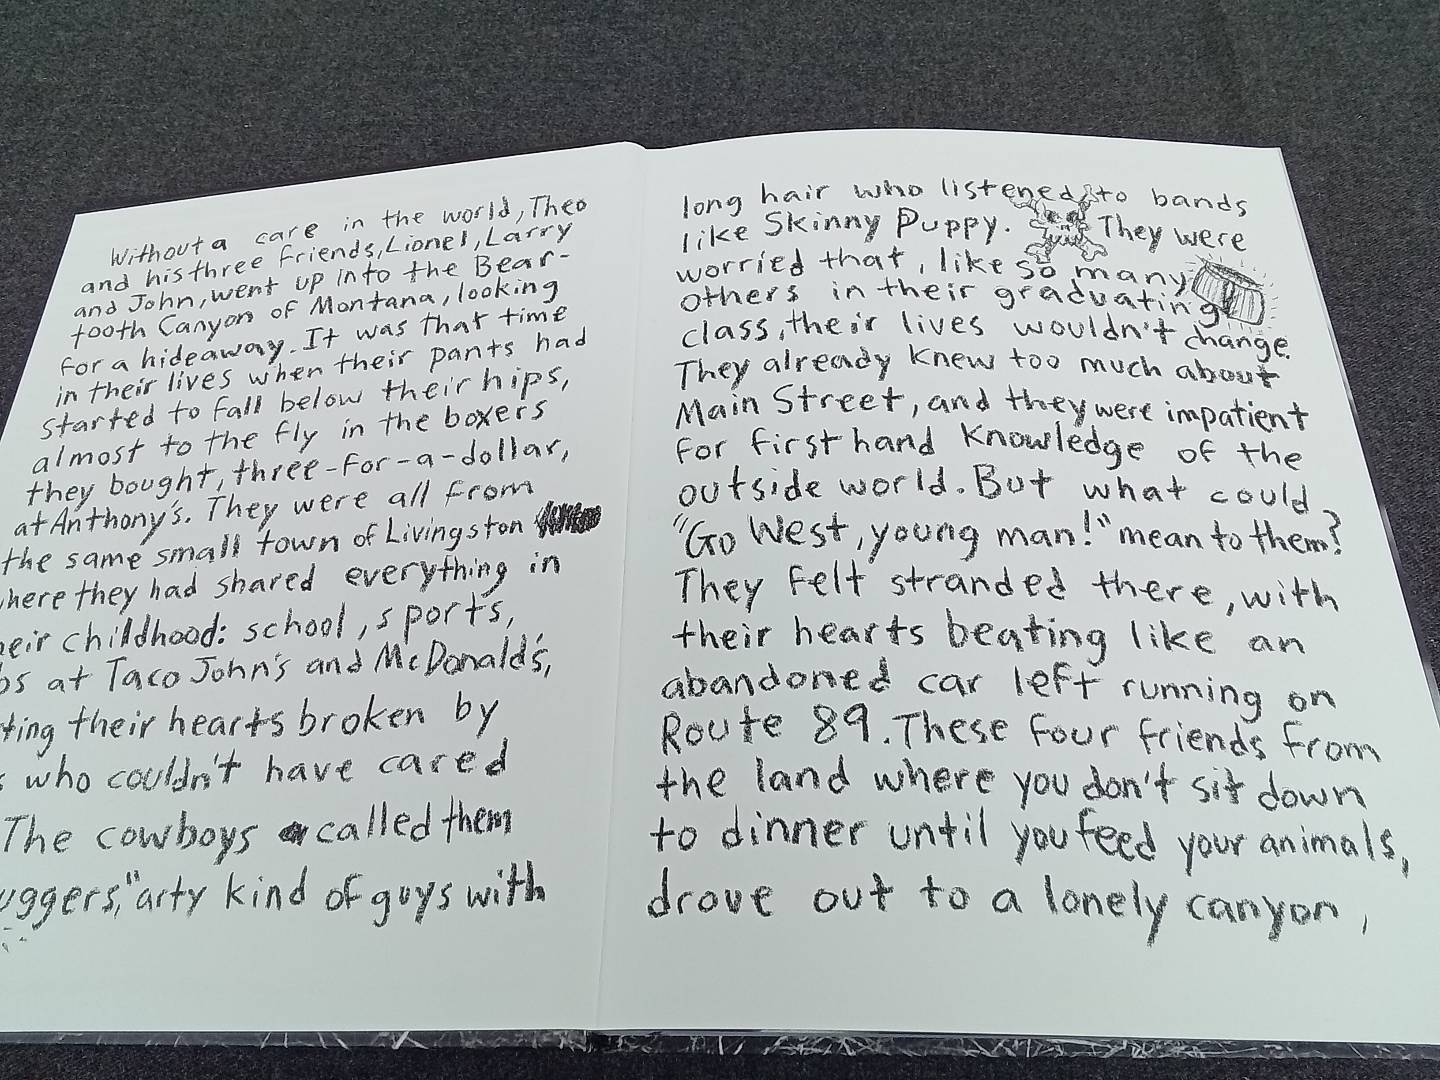 Without a care in the world, Theo
and his three friends, Lionel, Larry
and John, went up into the Bear-
tooth Canyon of Montana, looking
for a hideaway. It was that time
in their lives when their pants had
started to fall below their hips,
almost to the fly in the boxers
they bought, three-for-a-dollar,
at Anthony's. They were all from
the same small town of Livingston
they had shared everything in
childhood: school, sports,
at Taco John's and McDonald's,
their hearts broken by
who couldn't have cared
The cowboys called them
arty kind of guys with
long hair who listened to bands
like Skinny Puppy. They were
worried that, like so many
others in their graduating
class, their lives wouldn't change.
They already knew too much about
Main Street, and they were impatient
for firsthand knowledge of the
outside world. But what could
"Go West, young man!" mean to them?
They felt stranded there, with
their hearts beating like an
abandoned car left running on
Route 89. These four friends from
the land where you don't sit down
to dinner until you feed your animals,
drove out to a lonely canyon,